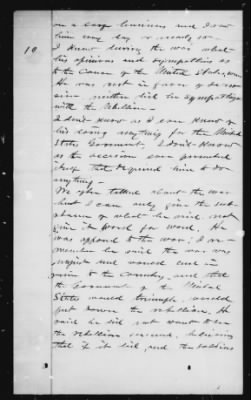 on a large business and I saw
him every day or nearly so.
10 I knew during the war what
his opinions and sympathies as
to the Cause of the United States were.
He was not in favor of secession
nor neither did he sympathize
with the Rebellion –
I don't know as I ever knew of
his doing anything for the United
States Government, I don't know
as the occasion ever presented
itself that required him to do
anything –
We often talked about the war
but I can only give the sub-
stance of what he said, not
give it word for word. He
was opposed to the war; I re-
member he said the war was
unjust and would end in
ruin to the Country, and that
the Government of the United
States would triumph, would
put down the rebellion. He
said he did not want to see
the rebellion succeed, believing
that if it did, and the